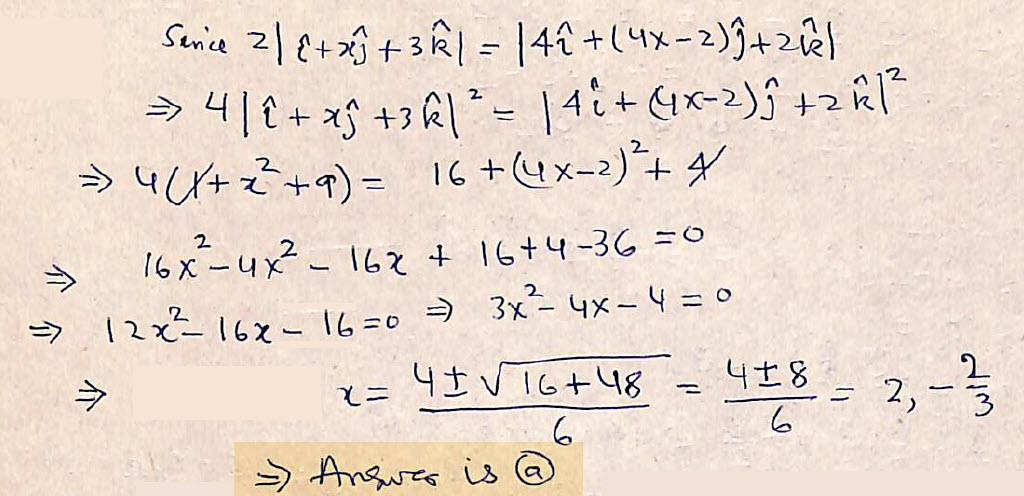 Since 2|î+xĵ+3k̂| = |4î+(4x-2)ĵ+2k̂|
⇒ 4|î+xĵ+3k̂|² = |4î+(4x-2)ĵ+2k̂|²
⇒ 4(1+x²+9) = 16+(4x-2)²+4
⇒ 16x²-4x²-16x+16+4-36=0
⇒ 12x²-16x-16=0 ⇒ 3x²-4x-4=0
⇒ x= (4±√(16+48))/6 = (4±8)/6 = 2, -2/3
⇒ Answer is ⓐ